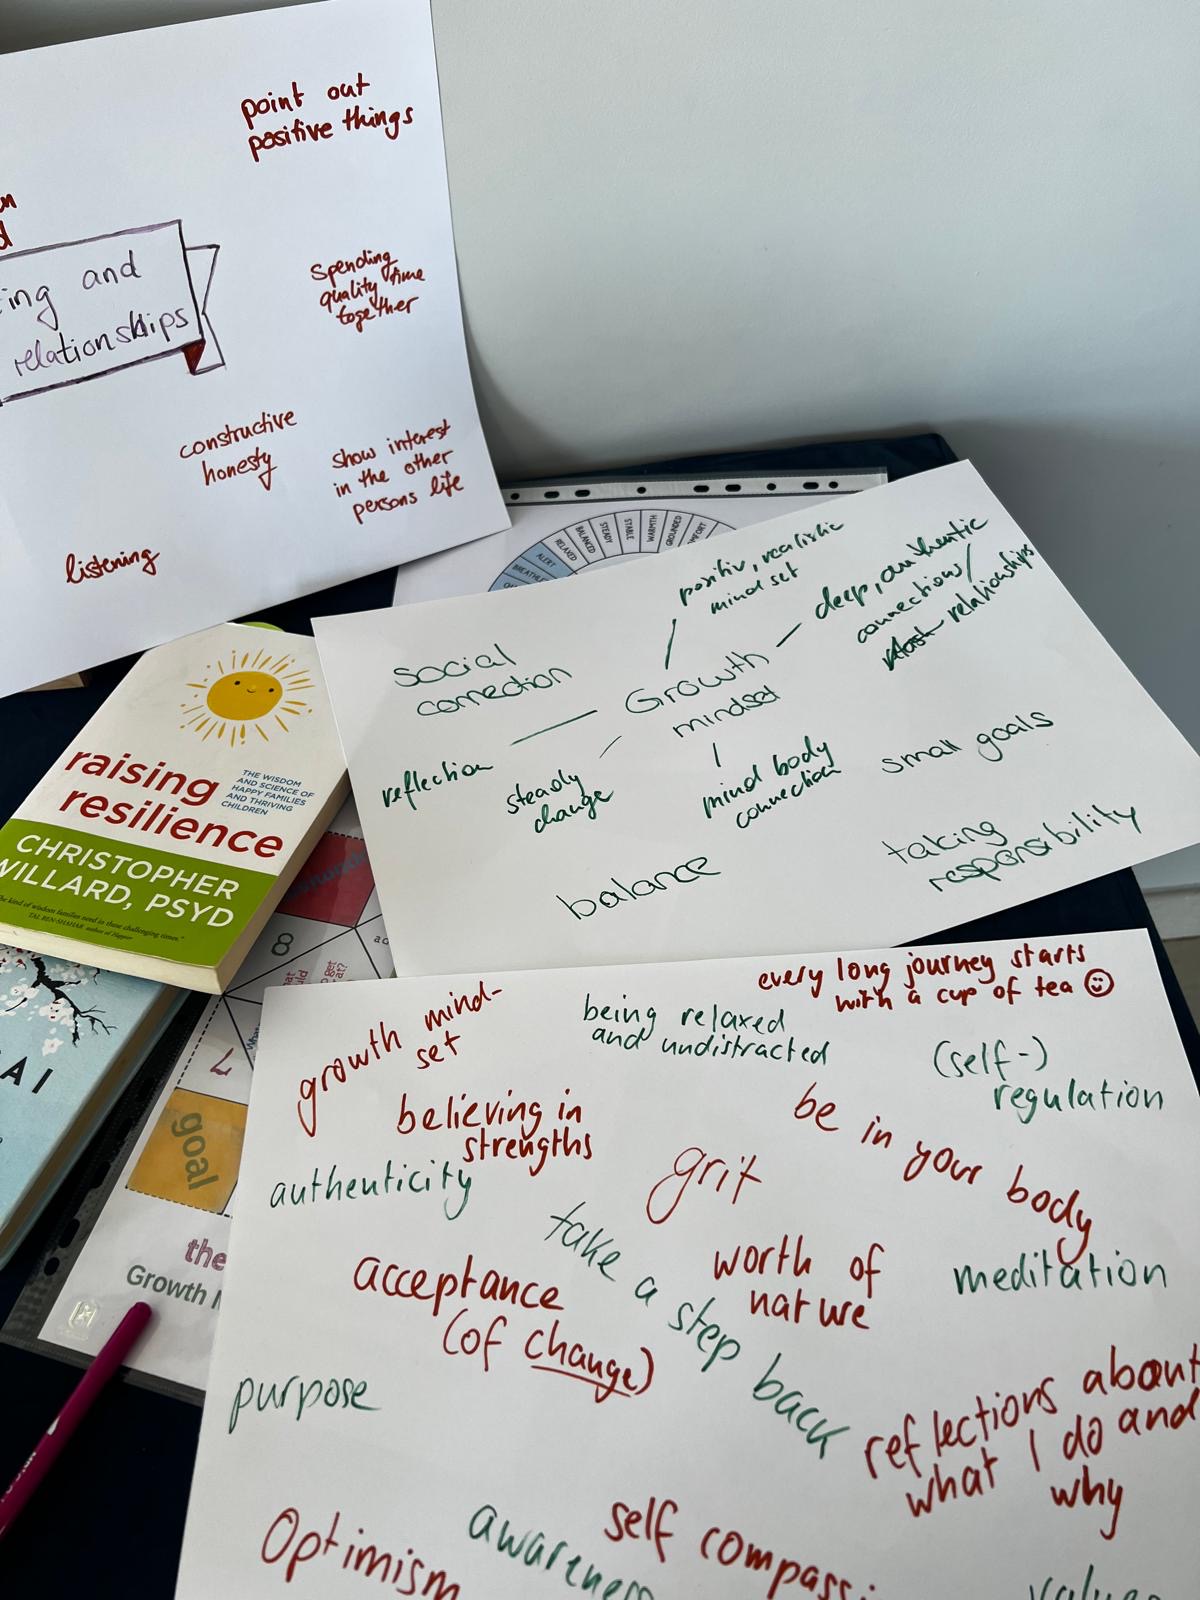 point out
positive things
ing and
relationships
Spending
quality time
together
constructive
honesty
show interest
in the other
persons life
listening
ALERT
RELAXED
BALANCED
STEADY
STABLE
WARMTH
GROUNDED
positiv, realistic
mind set
deep, authentic
connections/
relationships
Social
connection
Growth
mindset
reflection
steady
change
mind body
connection
small goals
balance
taking
responsibility
raising
resilience
THE WISDOM
AND SCIENCE OF
HAPPY FAMILIES
AND THRIVING
CHILDREN
CHRISTOPHER
WILLARD, PSYD
"The kind of wisdom families need in these challenging times."
TAL BEN-SHAHAR author of Happier
AI
8
7
goal
the
Growth
every long journey starts
with a cup of tea
growth mind-
set
being relaxed
and undistracted
(self-)
regulation
believing in
strengths
be in your body
authenticity
grit
take a step back
worth of
nature
meditation
acceptance
(of change)
purpose
reflections about
what I do and
why
Optimism
awareness
self compassi
values